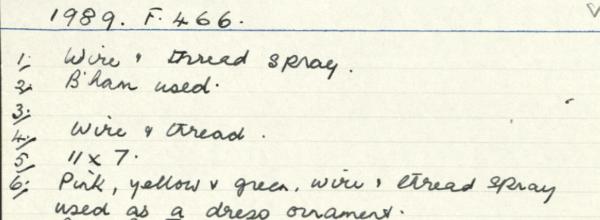 1989. F. 466.
1/ Wire & thread spray.
2/ B'ham used.
3/
4/ Wire & thread.
5/ 11 x 7.
6/ Pink, yellow & green, wire & thread spray
used as a dress ornament.